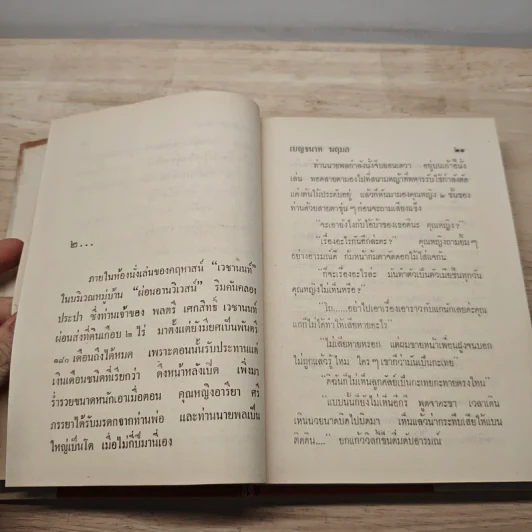 ๒...
ภายในห้องนั่งเล่นของคฤหาสน์ “เวชานันท์”
ในบริเวณหมู่บ้าน “ผ่อนอานวิเวสน์” ริมคลอง
ประปา ซึ่งท่านเจ้าของ พลตรี เศกสิทธิ์ เวชานนท์
ผ่อนส่งที่ดินเกือบ ๒ ไร่ มาตั้งแต่ยังมียศเป็นพันตรี
๑๘๐ เดือนถึงได้หมด เพราะตอนนั้นรับประทานแต่
เงินเดือนชนิดที่เรียกว่า ดึงหน้าหลังเปิด เพิ่งมา
ร่ำรวยขนาดหนักเอาเมื่อตอน คุณหญิงอาริยา ศรี
ภรรยาได้รับมรดกจากท่านพ่อ และท่านนายพลเป็น
ใหญ่เป็นโต เมื่อไม่กี่ปีมานี่เอง
เบญจมาศ นฤมล ๒๑
ท่านนายพลกำลังนั่งจิบสอนเดวา อยู่บนเก้าอี้นั่ง
เล่น ทอดสายตามองไปที่สนามหญ้าที่ทหารรับใช้กำลังตัด
แต่งต้นไม้ประดับอยู่ แล้วก็หันมามองคุณหญิง ๒ ชั้นของ
ท่านด้วยสายตาขุ่น ๆ ก่อนจะถามเสียงแข็ง
“จะเอายังไงกับไอ้บ้าของเธอดีน่ะ คุณหญิง?”
“เรื่องอะไรกันอีกล่ะคะ?” คุณหญิงถามยิ้ม ๆ
อย่างอารมณ์ดี ก้มหน้าก้มตาจัดดอกไม้ใส่แจกัน
“ก็จะเรื่องอะไรล่ะ มันทำตัวเป็นตัวเมียเข้าไปทุกวัน
คุณหญิงไม่เห็นหรือ?”
“โถ.....อย่าไปเอาเรื่องเอาราวกับแกนักเลยค่ะคุณ
แกก็ไม่ได้ทำให้เสียหายอะไร”
“ไม่เสียหายหรอก แต่ผมขายหน้าเพื่อนฝูงจนบอก
ไม่ถูกแล้วรู้ไหม ใคร ๆ เขาก็ว่ามันเป็นกะเทย”
“ดิฉันก็ไม่เห็นลูกศลย์เป็นกะเทยกะทายตรงไหน”
“แบบนั้นก็ยังไม่เห็นอีกรึ พูดจาคะขา เวลาเดิน
เหินนวยนาดบิดไปบิดมา เห็นแล้วน่ากระทืบเสียให้แบน
ติดดิน....” ยกแก้ววิสกี้ขึ้นดื่มดับอารมณ์